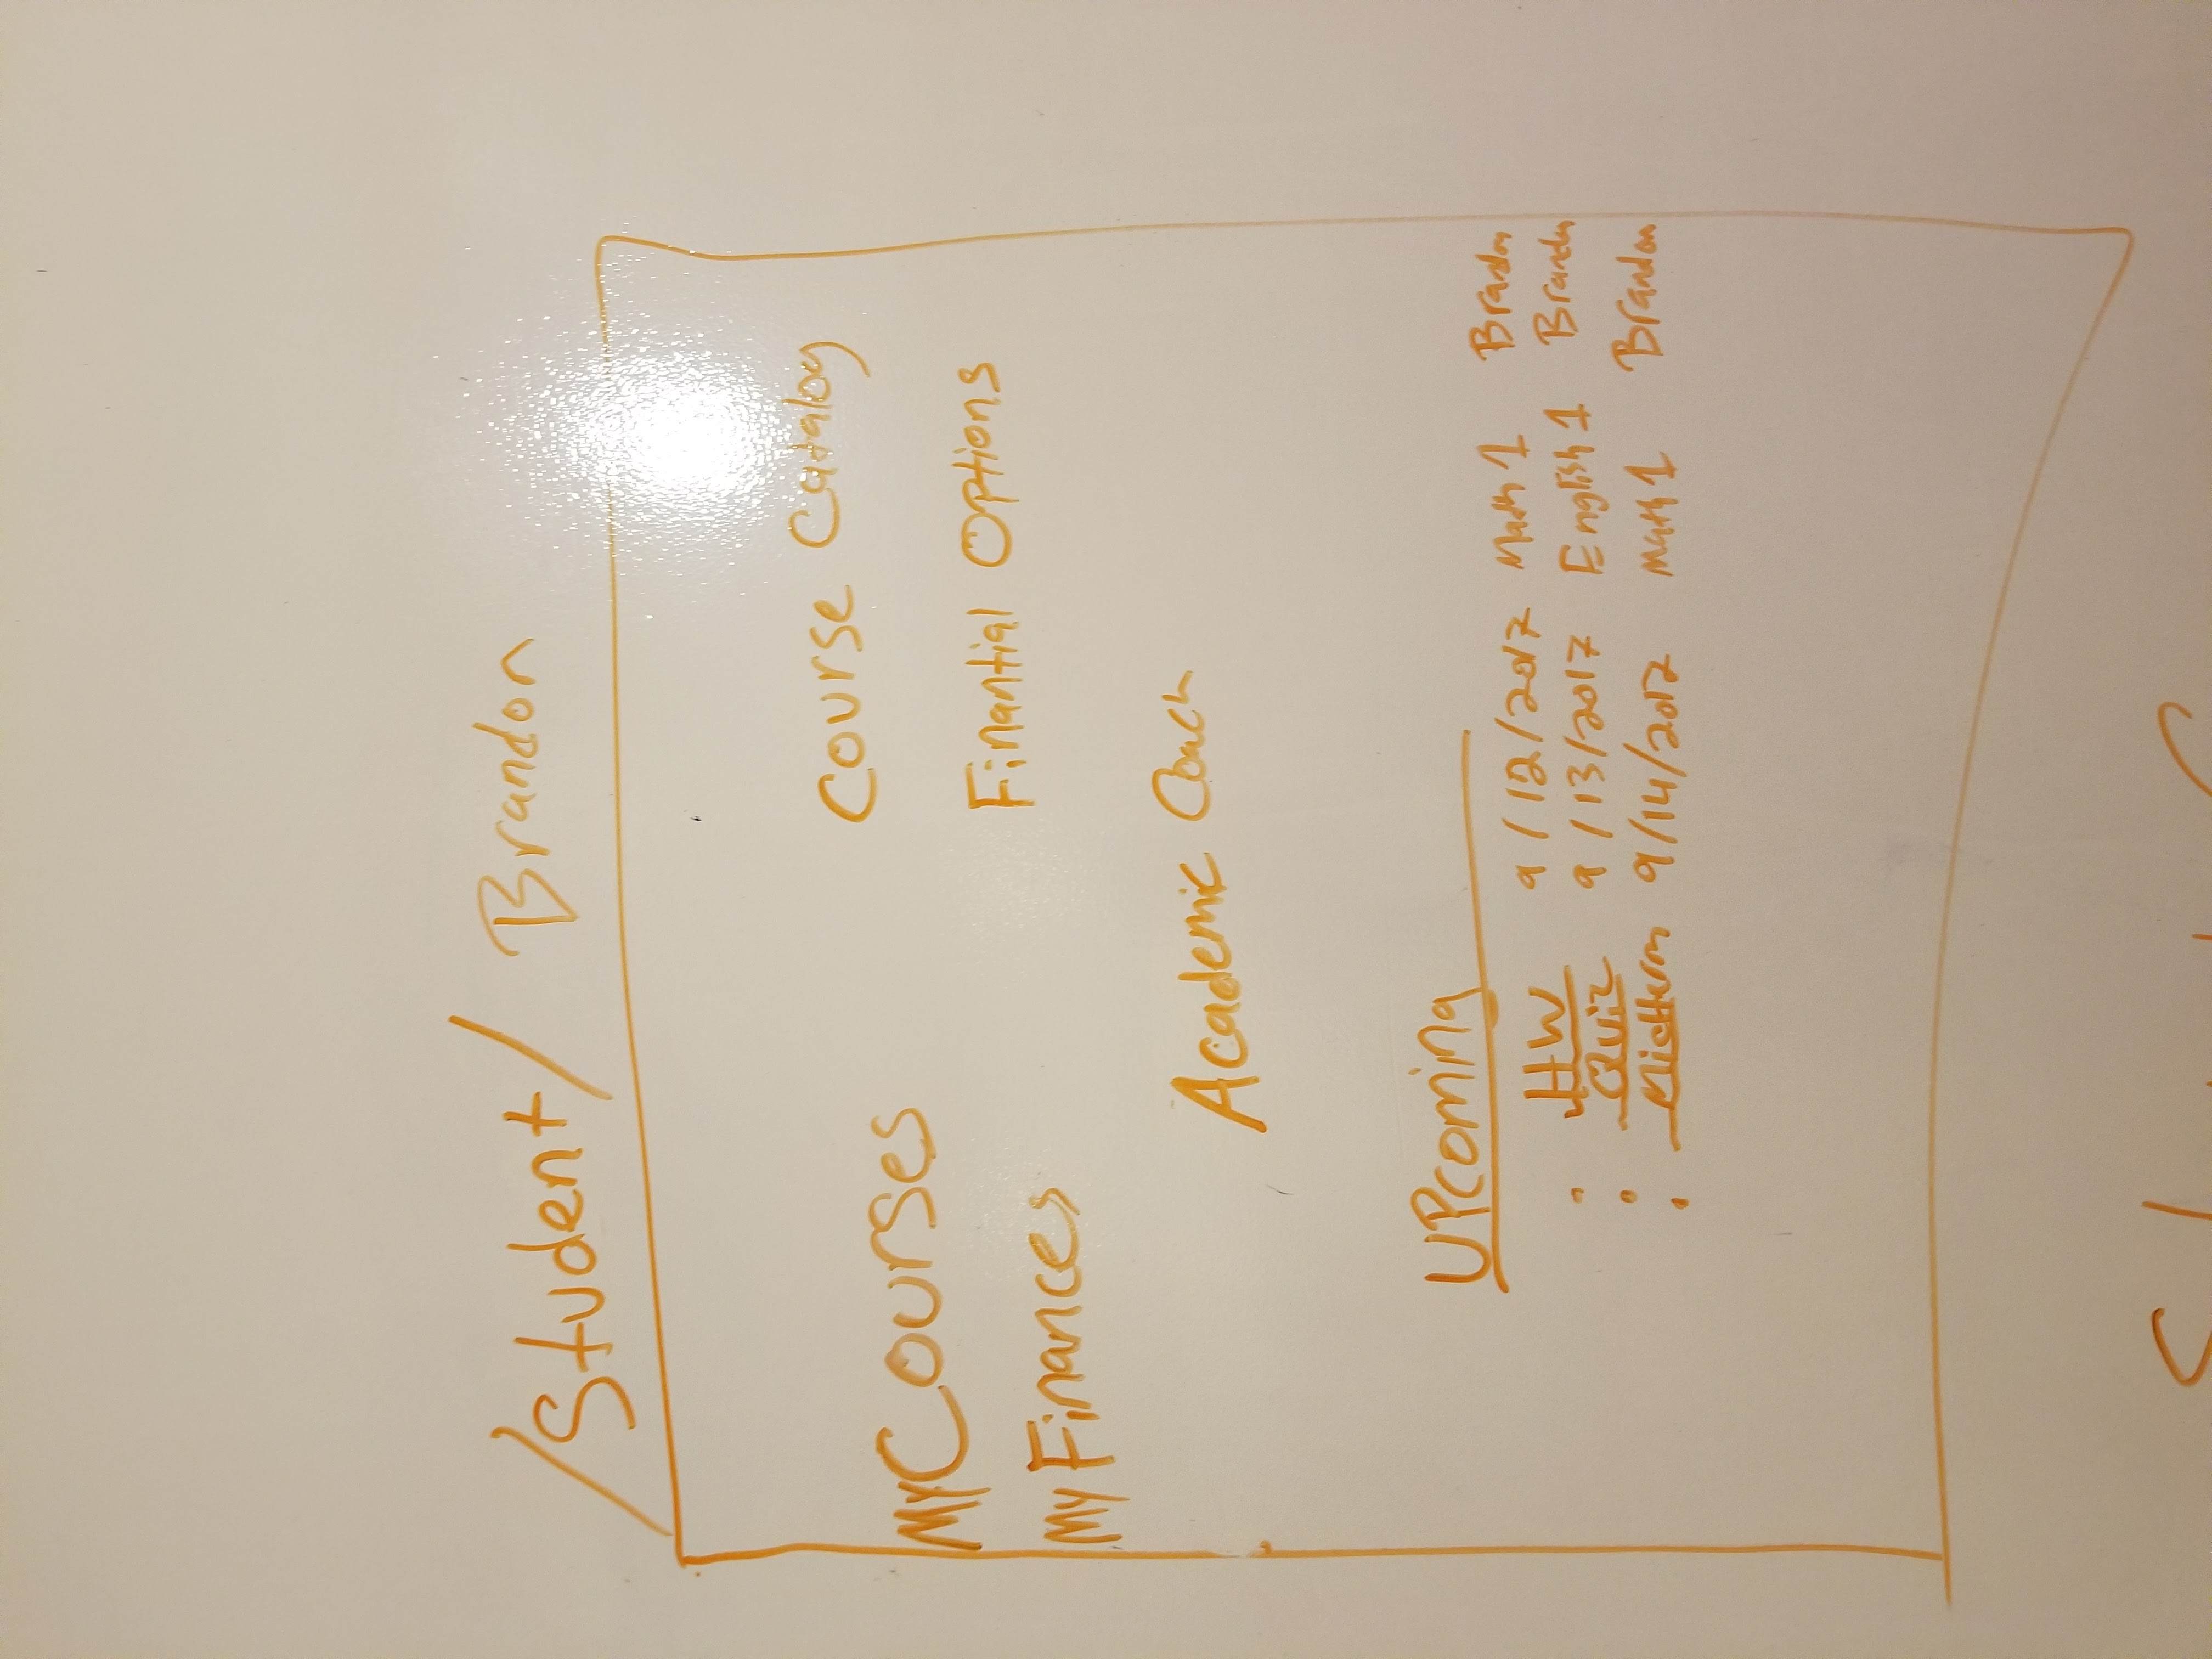 /Student/ Brandon
Course Catalog
MyCourses
Finantial Options
My Finances
Academic Coach
Upcoming
HW 9/12/2017 Math 1 Brandon
Quiz 9/13/2017 English 1 Brandon
Midterm 9/14/2017 Math 1 Brandon